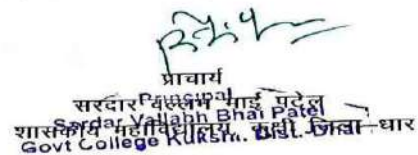 प्राचार्य
Principal
सरदार वल्लभ भाई पटेल
Sardar Vallabh Bhai Patel
शासकीय महाविद्यालय, कुक्षी जिला-धार
Govt College Kukshi. Dist. Dhar